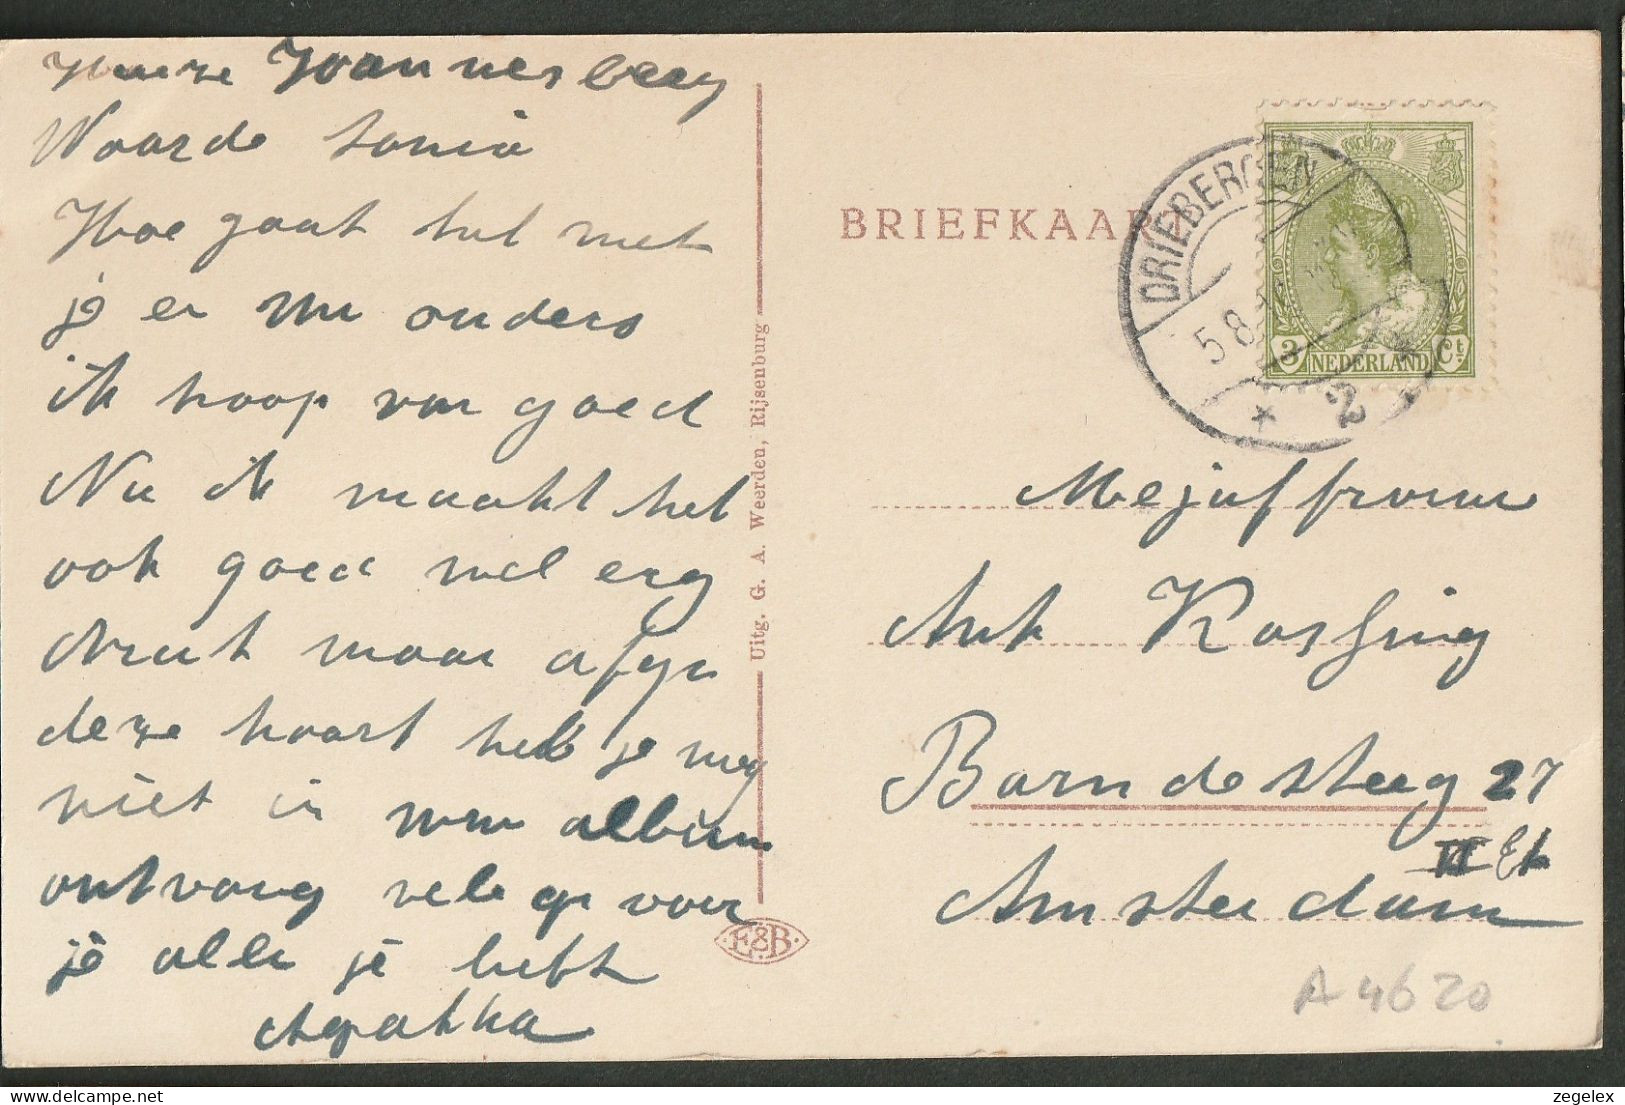 Huize Joannesberg
Waarde tonia
Hoe gaat het met
je en uw ouders
ik hoop van goed
Nu ik maakt het
ook goed wel erg
druk maar afijn
deze kaart heb je nog
niet in uw album
ontvang vele gr voor
je alle je liefh
Agatha
Uitg. G. A. Weerden, Rijsenburg
E&B
BRIEFKAART
DRIEBERGEN
5 8
2
3 NEDERLAND Ct
Mejuffrouw
Ant Kossing
Barndesteeg 27
II Et
Amsterdam
A 4620
zegelex